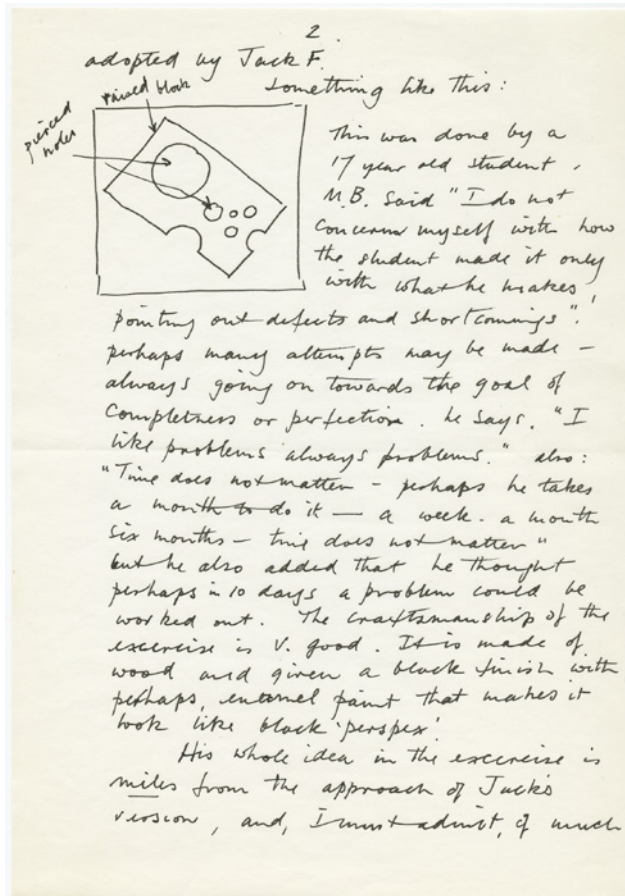 2.
adopted by Jack F.
Something like this:
raised block
pierced
holes
This was done by a
17 year old student.
M.B. said "I do not
concern myself with how
the student made it only
with what he makes,
pointing out defects and shortcomings".
perhaps many attempts may be made –
always going on towards the goal of
completness or perfection. he says. "I
like problems always problems." also:
"Time does not matter – perhaps he takes
a month to do it — a week. a month
six months – time does not matter"
but he also added that he thought
perhaps in 10 days a problem could be
worked out. The craftsmanship of the
excercise is V. good. It is made of
wood and given a black finish with
perhaps, enamel paint that makes it
look like black 'perspex'.
His whole idea in the excercise is
miles from the approach of Jack's
version, and, I must admit, of much